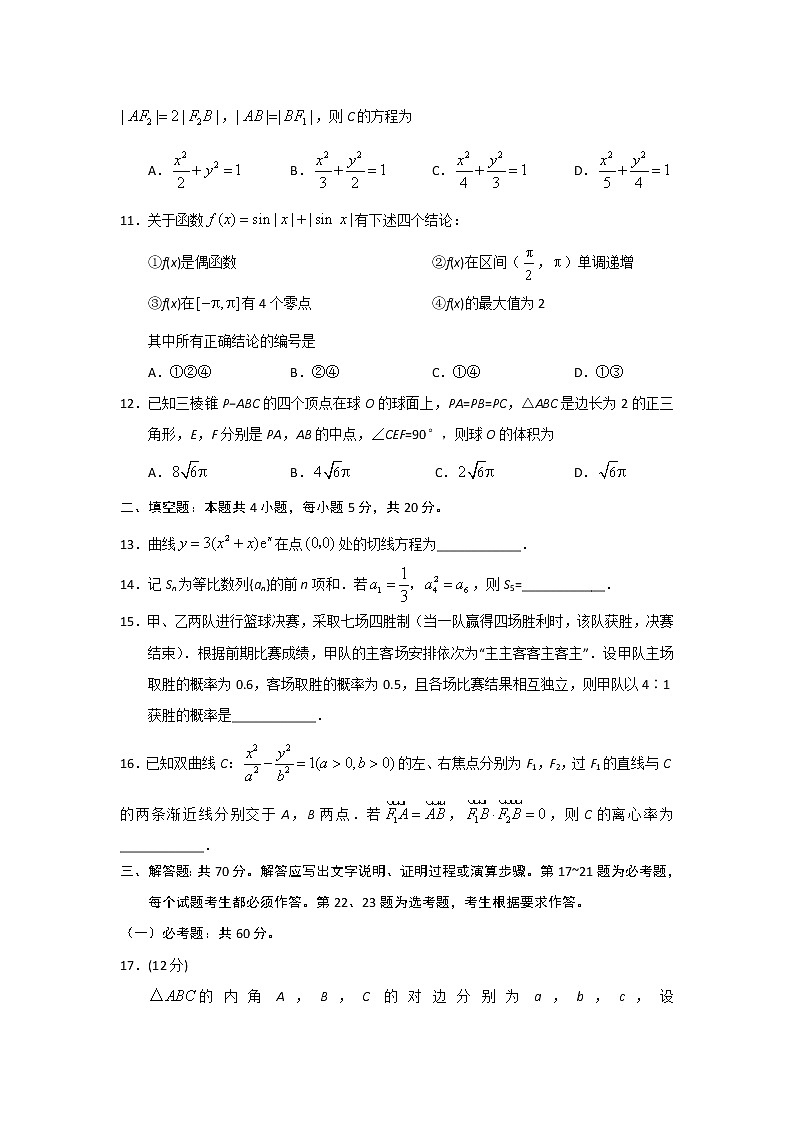 | AF₂ |= 2 | F₂B |，| AB |=| BF₁ |，则 C 的方程为
A．x²/2 + y² = 1 B．x²/3 + y²/2 = 1 C．x²/4 + y²/3 = 1 D．x²/5 + y²/4 = 1
11．关于函数 f (x) = sin | x | + | sin x | 有下述四个结论：
①f(x)是偶函数 ②f(x)在区间（π/2，π）单调递增
③f(x)在[−π,π]有 4 个零点 ④f(x)的最大值为 2
其中所有正确结论的编号是
A．①②④ B．②④ C．①④ D．①③
12．已知三棱锥 P−ABC 的四个顶点在球 O 的球面上，PA=PB=PC，△ABC 是边长为 2 的正三
角形，E，F 分别是 PA，AB 的中点，∠CEF=90°，则球 O 的体积为
A．8√6π B．4√6π C．2√6π D．√6π
二、填空题：本题共 4 小题，每小题 5 分，共 20 分。
13．曲线 y = 3(x² + x)eˣ 在点 (0,0) 处的切线方程为____________．
14．记 Sₙ 为等比数列{aₙ}的前 n 项和．若 a₁ = 1/3，a₄² = a₆，则 S₅=____________．
15．甲、乙两队进行篮球决赛，采取七场四胜制（当一队赢得四场胜利时，该队获胜，决赛
结束）．根据前期比赛成绩，甲队的主客场安排依次为“主主客客主客主”．设甲队主场
取胜的概率为 0.6，客场取胜的概率为 0.5，且各场比赛结果相互独立，则甲队以 4∶1
获胜的概率是____________．
16．已知双曲线 C：x²/a² − y²/b² = 1(a > 0, b > 0) 的左、右焦点分别为 F₁，F₂，过 F₁ 的直线与 C
的两条渐近线分别交于 A，B 两点．若 F₁A = AB，F₁B · F₂B = 0，则 C 的离心率为
____________．
三、解答题：共 70 分。解答应写出文字说明、证明过程或演算步骤。第 17~21 题为必考题，
每个试题考生都必须作答。第 22、23 题为选考题，考生根据要求作答。
（一）必考题：共 60 分。
17．(12 分)
△ABC 的内角 A，B，C 的对边分别为 a，b，c，设